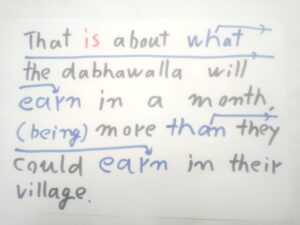 That is about what
the dabhawalla will
earn in a month,
(being) more than they
could earn in their
village.